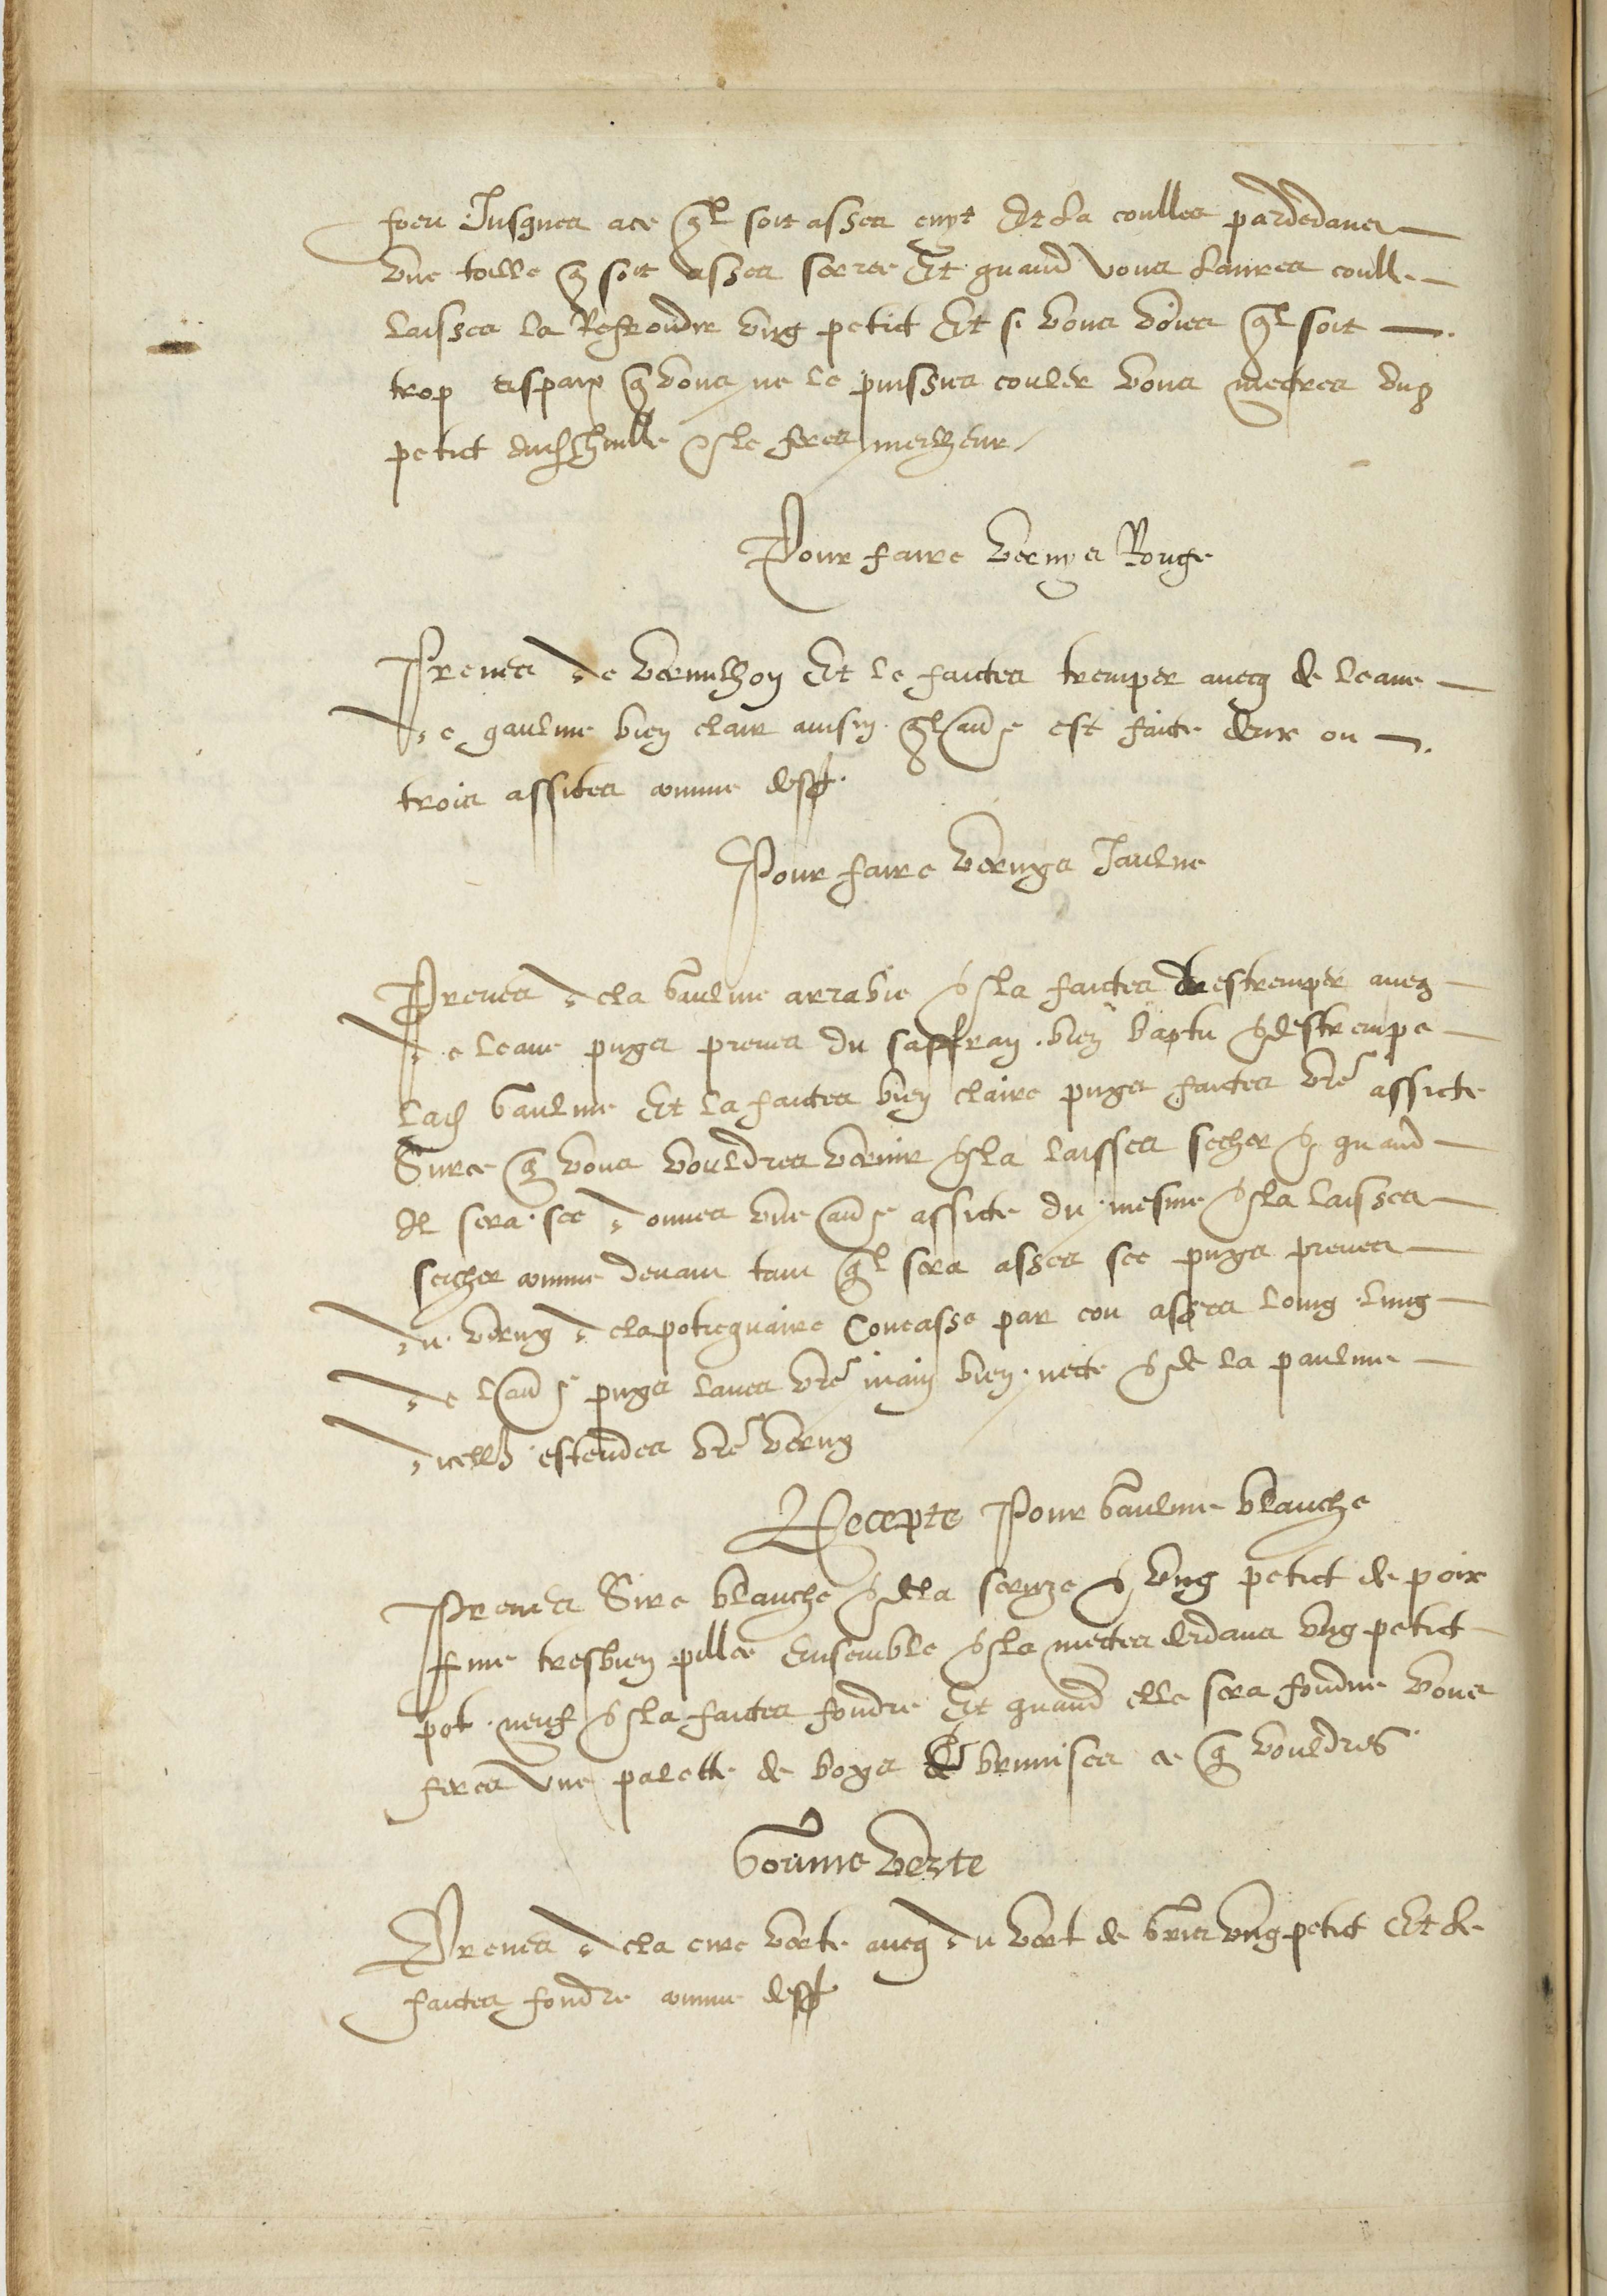 foeu Jusques ace ql soit asses cuyt Et la coulles pardedans
vne toille q soit asses serree Et quand vous laures coulle
laisses la Refroudir vng petit Et si vous voies ql soit
trop espaix q vous ne le puissies couler vous metres vng
petit dud huille & le feres meilheur
Pour faire vernys Rouge
Prenes de vermilhon Et le faictes tremper aueq de leaue
de gaulme bien clair ainsin ql aud est faicte deux ou
trois assietes comme dess
Pour faire vernys Jaulne
Prenes de la gaulme arrabie & la faictes destremper aueq
de leaue puys prenes du saffran bien baptu & destrempe
lad gaulme Et la faictes bien claire puys faictes vre assiete
Surce q vous vouldres vernir & la laisses secher & quand
Il sera sec donnes vne assiete du mesme & la laisses
secher comme deuant tant ql sera asses sec puys prenes
du verny de lapoticquaire Concasse par cou asses loing lung
de l puys laues vre main bien nette & de la paulme
dicelle estendes vre verny
Recepte Pour gaulme blanche
Prenes Sire blanche & de la seruze & vng petit de poix
fine tresbien piller Ensemble & la mettes dedans vng petit
pot neuf & la faictes fondre Et quand elle sera fondue vous
feres vne palette de boys & brunises ce q vouldres
Gomme verte
Prenes de la cire verte aueq du vert de gris vng petit Et le
faictes fondre comme dess